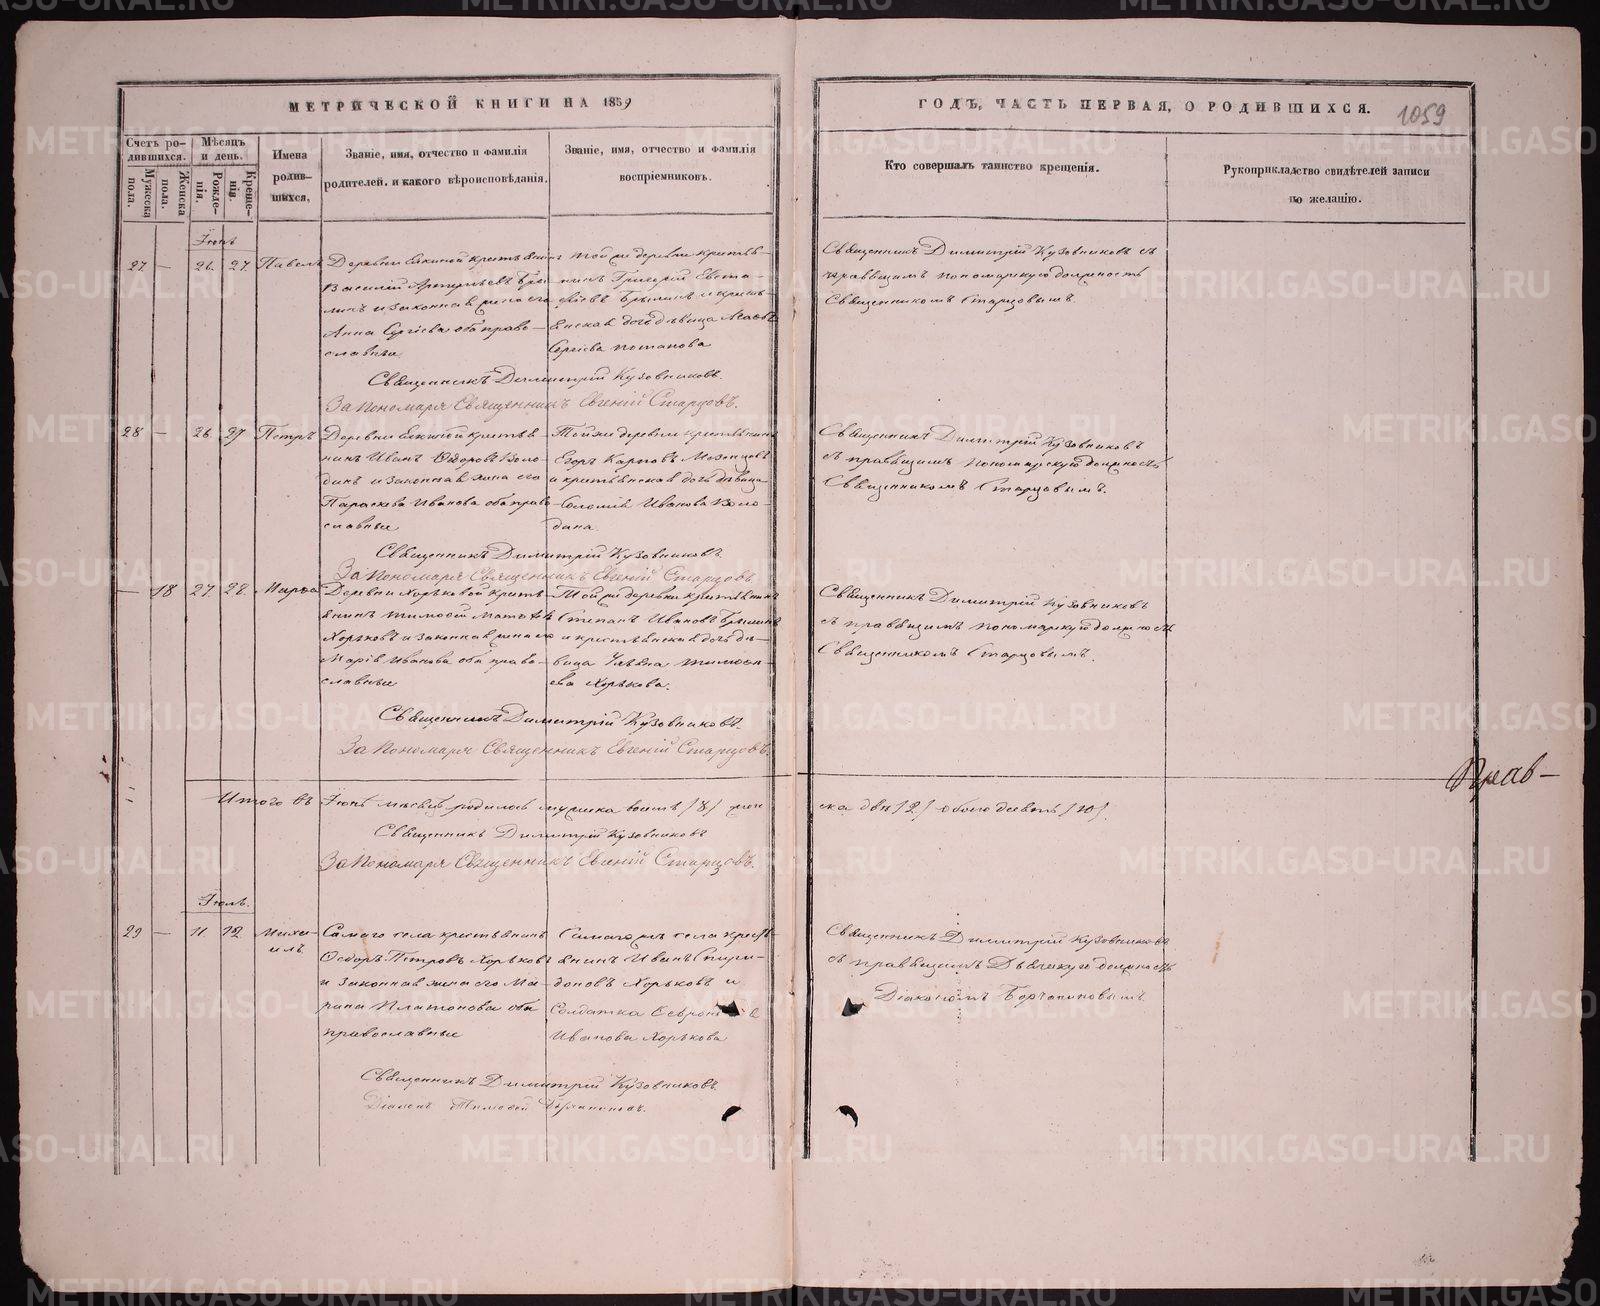 МЕТРИЧЕСКОЙ КНИГИ НА 1859
ГОДЪ, ЧАСТЬ ПЕРВАЯ, О РОДИВШИХСЯ.
1059
Счетъ ро-
дившихся.
Мужеска
пола.
Женска
пола.
Мѣсяцъ
и день.
Рожде-
нія.
Креще-
нія.
Имена
родив-
шихся,
Званіе, имя, отчество и фамилія
родителей, и какого вѣроисповѣданія.
Званіе, имя, отчество и фамилія
воспріемниковъ.
Кто совершалъ таинство крещенія.
Рукоприкладство свидѣтелей записи
по желанію.
Іюнь
27 — 26. 27. Павелъ
Деревни крестьянинъ
Василій
и законная жена его
Анна Сергіева оба право-
славные
Той же деревни крестья-
нинъ Григорій
Брылинъ и кресть-
янская дочь дѣвица
Сергіева Потапова
Священникъ Димитрій Кузовниковъ съ
правящимъ пономарскую должность
Священникомъ Старцовымъ.
Священникъ Димитрій Кузовниковъ.
За Пономаря Священникъ Евгеній Старцовъ.
28 — 26 27 Петръ
Деревни крестья-
нинъ Иванъ Ѳедоровъ Коло-
динъ и законная жена его
Параскева Иванова оба право-
славные
Той же деревни крестьянинъ
Егоръ Карповъ
и крестьянская дочь дѣвица
Соломія Иванова Коло-
дина.
Священникъ Димитрій Кузовниковъ
съ правящимъ пономарскую должность
Священникомъ Старцовымъ.
Священникъ Димитрій Кузовниковъ.
За Пономаря Священникъ Евгеній Старцовъ.
— 18 27 28. Марѳа
Деревни Хорьковой кресть-
янинъ Тимоѳей
Хорьковъ и законная жена его
Марія Иванова оба право-
славные
Той же деревни крестьянинъ
Степанъ Ивановъ Брылинъ
и крестьянская дочь дѣ-
вица Ульяна Тимоѳе-
ева Хорькова.
Священникъ Димитрій Кузовниковъ
съ правящимъ пономарскую должность
Священникомъ Старцовымъ.
Священникъ Димитрій Кузовниковъ.
За Пономаря Священникъ Евгеній Старцовъ.
Итого въ Іюнѣ мѣсяцѣ родилось мужеска восемь /8/ жен-
ска двѣ /2/ обоего десять /10/.
Прав-
Священникъ Димитрій Кузовниковъ
За Пономаря Священникъ Евгеній Старцовъ.
Іюль.
29 — 11. 12. Михаи-
илъ.
Самаго села крестьянинъ
Ѳедоръ Петровъ Хорьковъ
и законная жена его Ма-
рина Платонова оба
православные
Самаго же села кресть-
янинъ Иванъ Спири-
доновъ Хорьковъ и
Солдатка
Иванова Хорькова
Священникъ Димитрій Кузовниковъ
съ правящимъ Дьячкую должность
Діакономъ
Священникъ Димитрій Кузовниковъ.
Діаконъ Тимоѳей
METRIKI.GASO-URAL.RU